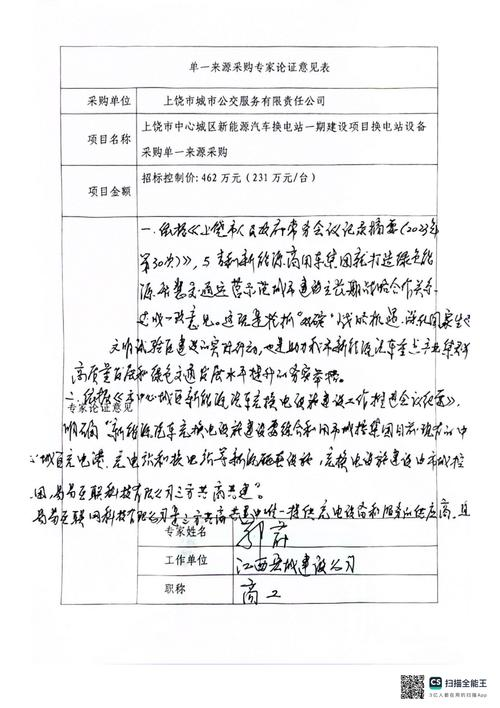 单一来源采购专家论证意见表
采购单位 上饶市城市公交服务有限责任公司
项目名称 上饶市中心城区新能源汽车换电站一期建设项目换电站设备
采购单一来源采购
项目金额 招标控制价: 462 万元（231 万元/台）
一、依据《上饶市人民政府常务会议记录摘要（2023年
第30次）》，与吉利新能源商用车集团就打造绿色能
源智慧交通运营示范城市建立长期战略合作关系
达成一致意见。这既是抢抓“双碳”战略机遇、深化国家生
文明试验区建设的实际行动，也是助力我市新能源汽车重点产业
高质量发展和绿色交通发展水平提升的务实举措。
二、依据《中心城区新能源汽车充换电设施建设工作推进会议纪要》，
专家论证意见
明确“新能源汽车充换电设施建设要结合和市城控集团目前现有的中
心城区充电港、充电站和换电站等新能源基础设施，充换电设施建设由市城控
集团、易易互联科技有限公司三方共商共建”。
易易互联网科技有限公司是三方共商共建中唯一提供充电设备和服务的供应商，且
专家姓名
工作单位 江西 城建设公司
职称 高工
扫描全能王
3亿人都在用的扫描App